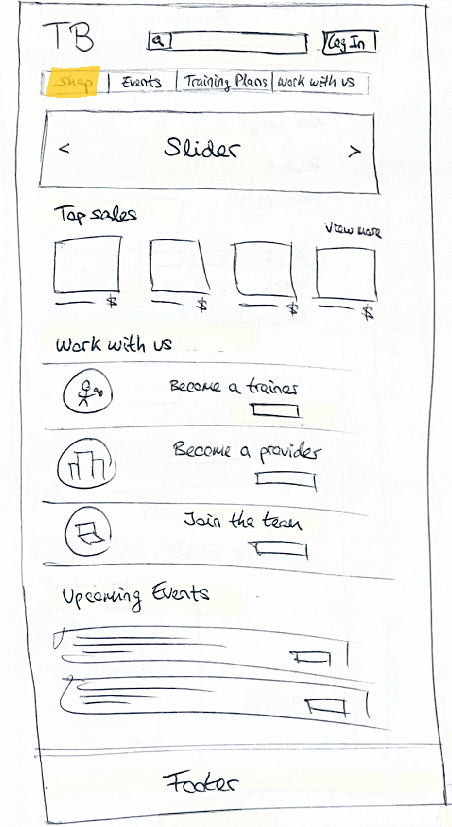 TB
Log In
Shop Events Training Plans Work with us
< Slider >
Top sales
View more
$ $ $ $
Work with us
Become a trainer
Become a provider
Join the team
Upcoming Events
Footer